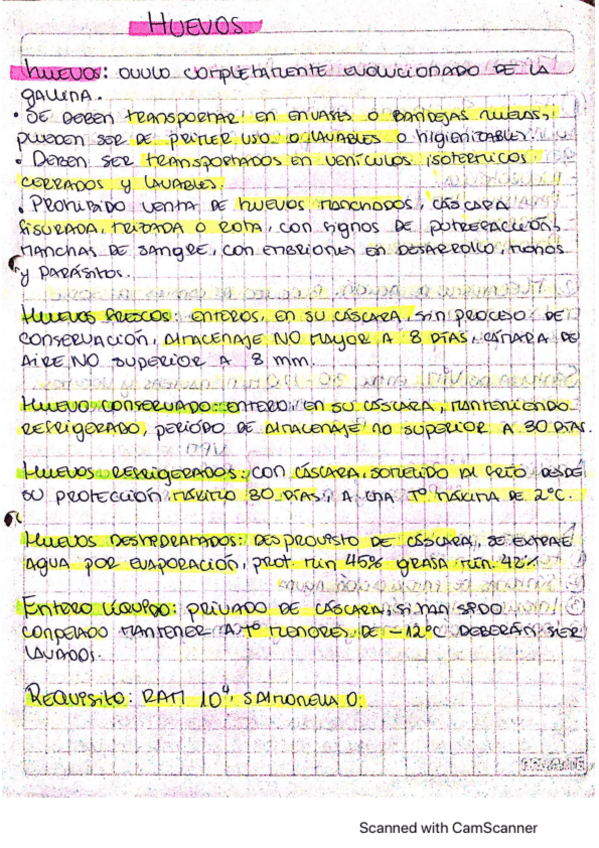 HUEVOS
HUEVOS: OVULO COMPLETAMENTE EVOLUCIONADO DE LA
GALLINA.
• SE DEBEN TRANSPORTAR EN ENVASES O BANDEJAS NUEVAS,
PUEDEN SER DE PRIMER USO O LAVABLES O HIGIENIZABLES.
• DEBEN SER TRANSPORTADOS EN VEHÍCULOS ISOTERMICOS
CERRADOS Y LAVABLES.
• PROHIBIDO VENTA DE HUEVOS MANCHADOS, CÁSCARA
FISURADA, TRIZADA O ROTA, CON SIGNOS DE PUTREFACCIÓN,
MANCHAS DE SANGRE, CON EMBRIONES EN DESARROLLO, HONGOS
Y PARÁSITOS.
HUEVOS FRESCOS: ENTEROS, EN SU CÁSCARA, SIN PROCESO DE
CONSERVACIÓN, ALMACENAJE NO MAYOR A 8 DÍAS, CÁMARA DE
AIRE NO SUPERIOR A 8 mm.
HUEVO CONSERVADO: ENTERO, EN SU CÁSCARA, MANTENIENDO
REFRIGERADO, PERÍODO DE ALMACENAJE NO SUPERIOR A 30 DÍAS.
HUEVOS REFRIGERADOS: CON CÁSCARA, SOMETIDO AL FRÍO DESDE
SU PROTECCIÓN, MÁXIMO 30 DÍAS, A UNA Tº MÁXIMA DE 2ºC.
HUEVOS DESHIDRATADOS: DESPROVISTO DE CÁSCARA, SE EXTRAE
AGUA POR EVAPORACIÓN, PROT. MIN 45% GRASA MIN. 42%
ENTERO LÍQUIDO: PRIVADO DE CÁSCARA, SI HAN SIDO
CONGELADO MANTENER A Tº MENORES DE -12ºC DEBERÁN SER
LAVADOS.
REQUISITO: RAM 10⁴, SALMONELLA 0.
Scanned with CamScanner